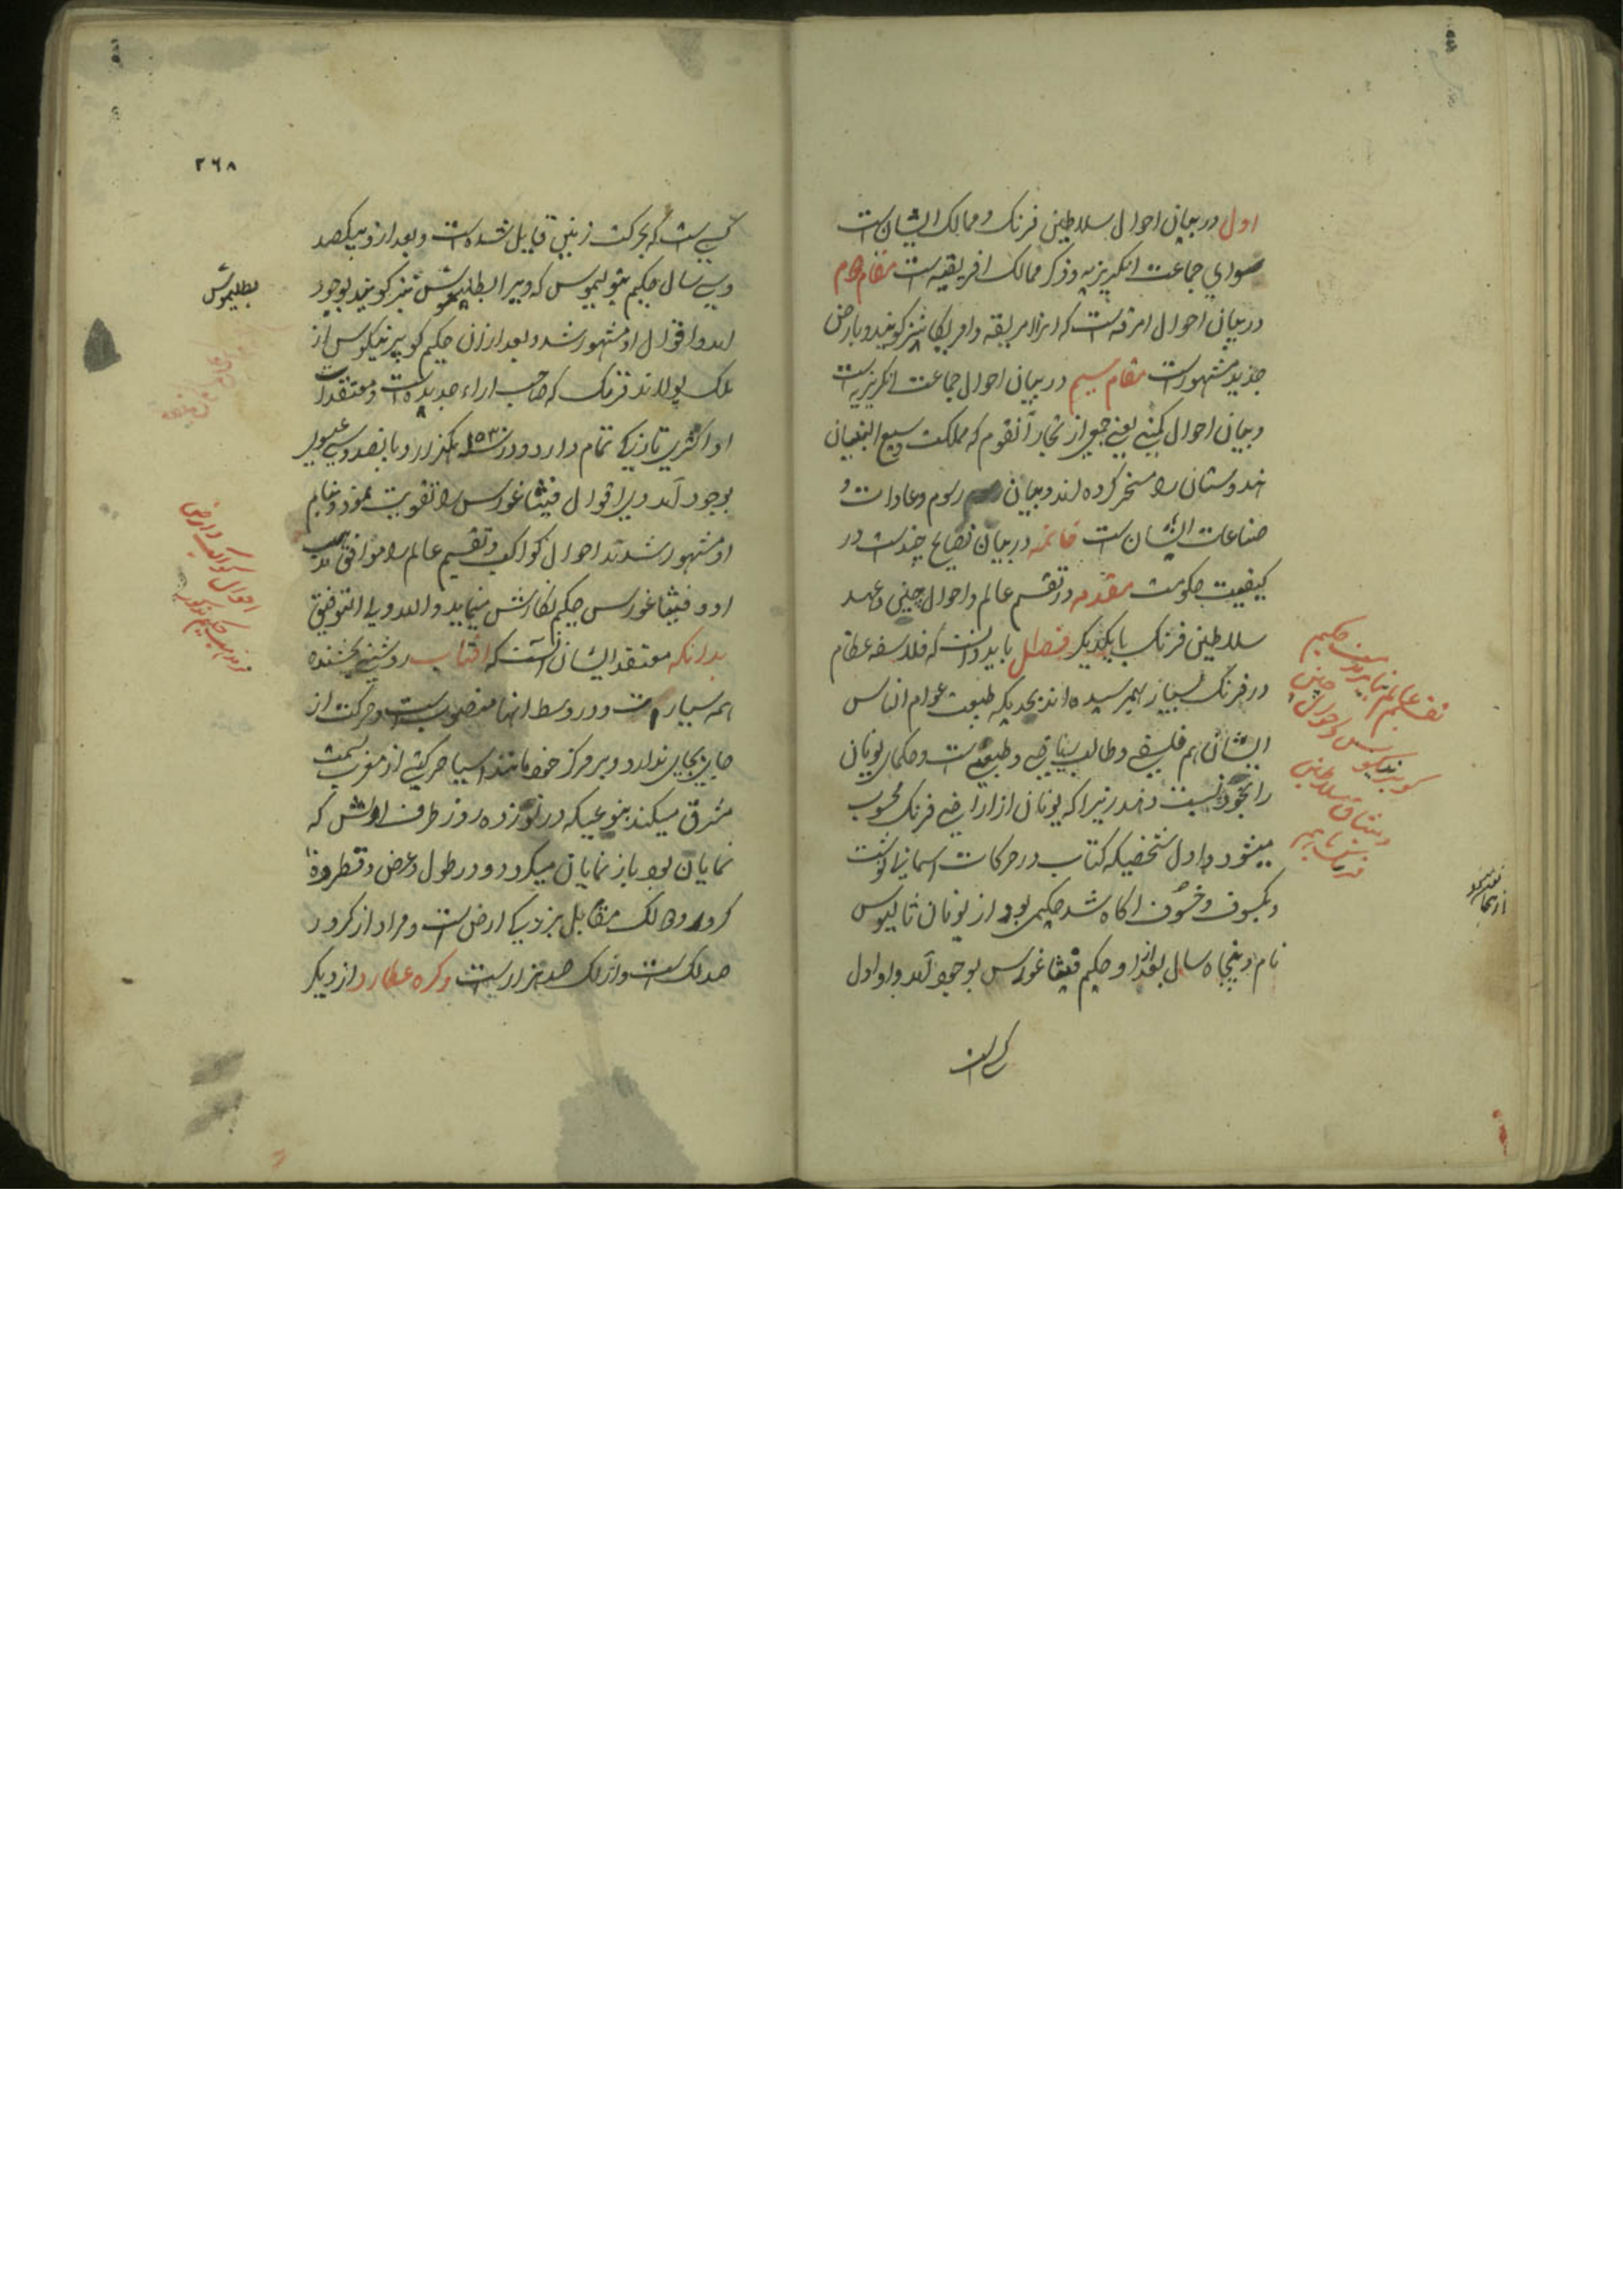 اول در بیان احوال سلاطین فرنک و ممالک ایشان است
سوای جماعت انکریزیه و ذکر ممالک افریقیه است مقام دوم
در بیان احوال امرقه است که انرا امریقه و امریکا نیز کویند و بارض
جدید مشهور است مقام سیم در بیان احوال جماعت انکریزیه است
و بیان احوال کمپنی یعنی جمعی از تجار آنقوم که مملکت وسیع البنیان
هندوستان را مسخر کرده اند و بیان رسوم و عادات و
صناعات ایشان است خاتمه در بیان نصایح چند است در
کیفیت حکومت مقدمه در تقسیم عالم و احوال چینی و عهد
سلاطین فرنک با یکدیکر فصل باید دانست که فلاسفه عظام
در فرنک بسیار بهم رسیده اند بحدیکه طبیعت عوام الناس
ایشان هم فلسفی و طالب ریاضی و طبیعی است و حکمای یونان
را بخود نسبت دهند زیرا که یونان از اراضی فرنک محسوب
میشود و اول شخصیکه کتاب در حرکات اسمانی نوشت
و بکسوف و خسوف اکاه شد حکیمی بود از یونان ثالیوس
نام و پنجاه سال بعد از او حکیم فیثاغورس بوجود آمد و او اول
کسی است
تقسیم عالم بنابر مذهب حکیم
کوپرنیکوس و احوال چین و
میثاق سلاطین
فرنک با هم
۲۶۸
کسی است که بحرکت زمین قایل شده است و بعد از و بیکصد
و سی سال حکیم بتولیموس که ویرا بطلیموس نیز کویند بوجود
آمد و اقوال او مشهور شد و بعد از آن حکیم کوپرنیکوس از
ملک پولاند فرنک که صاحب اراء جدیده است و معتقدات
او اکثری تازکی تمام دارد و در سنه ۱۵۳۰ یکهزار و پانصد و سی عیسوی
بوجود آمد ویرا اقوال فیثاغورس را تقویت نمود و بنام
او مشهور شدند احوال کواکب و تقسیم عالم را موافق مذهب
او و فیثاغورس حکیم نکارش مینماید و الله ولی التوفیق
بدانکه معتقد ایشان آنست که افتاب روشنی بخشنده
همه سیارات و در وسط انها منصوب است و حرکت از
جای بجای ندارد و بر مرکز خود مانند اسیا حرکتی از مغرب بسمت
مشرق میکند بنوعیکه در نوزده روز طرف اولش که
نمایان بود باز نمایان میکردد و در طول و عرض و قطر ده
کرور و ده لک مقابل بزرکی ارض است و مراد از کرور
صد لک است و از لک صد هزار است و کره عطارد از دیکر
بطلیموس
احوال کواکب و ارض